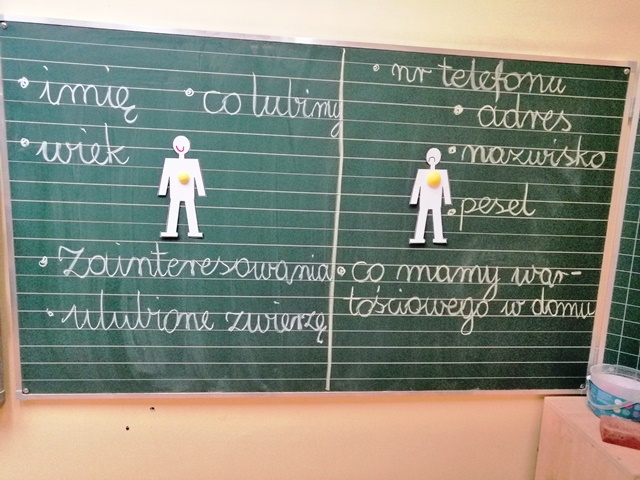 • imię • co lubimy
• wiek
• Zainteresowania
• ulubione zwierzę
• nr telefonu
• adres
• nazwisko
• pesel
• co mamy war-
tościowego w domu